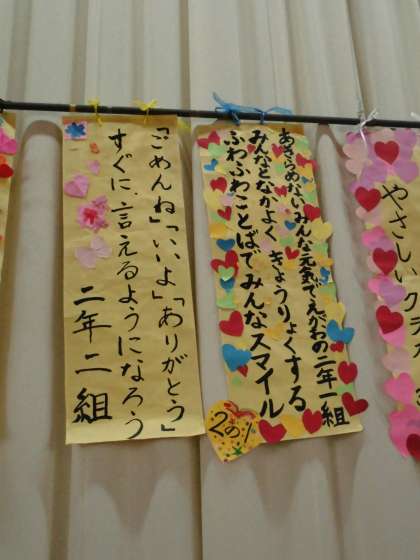 「ごめんね」「いいよ」「ありがとう」
すぐに、言えるようになろう
二年二組
あきらめないみんな元気でえがおの二年一組
みんなとなかよく きょうりょくする
ふわふわことばでみんなスマイル
2の1
やさしいクラス